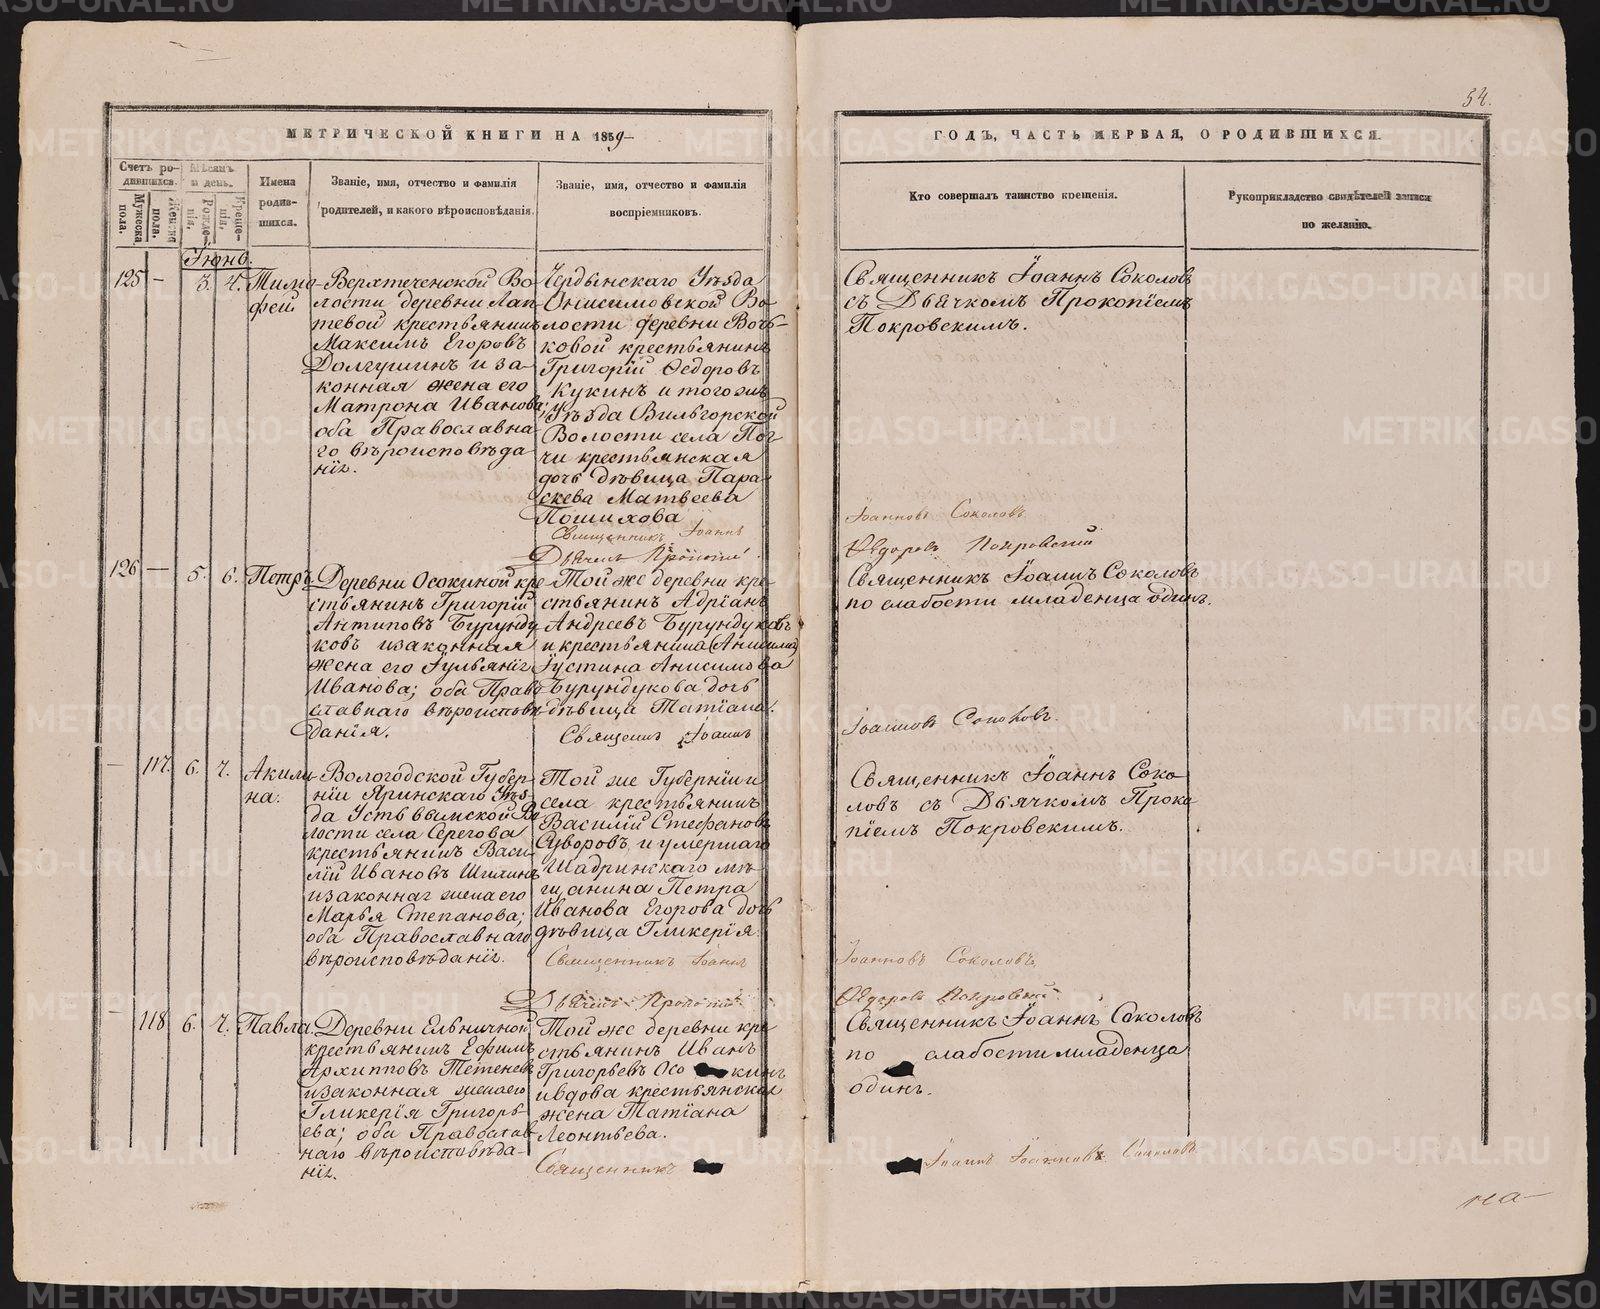 54.
МЕТРИЧЕСКОЙ КНИГИ НА 1859
ГОДЪ, ЧАСТЬ ПЕРВАЯ, О РОДИВШИХСЯ.
Счетъ ро-
дившихся.
Мужеска
пола.
Женска
пола.
Мѣсяцъ
и день.
Рожде-
нія.
Креще-
нія.
Имена
родив-
шихся.
Званіе, имя, отчество и фамилія
родителей, и какого вѣроисповѣданія.
Званіе, имя, отчество и фамилія
воспріемниковъ.
Кто совершалъ таинство крещенія.
Рукоприкладство свидѣтелей записи
по желанію.
Іюнь.
125 — 3. 4.
Тимо-
фей.
Верхтеченской Во-
лости деревни Лап-
тевой крестьянинъ
Максимъ Егоровъ
Долгушинъ и за-
конная жена его
Матрона Иванова;
оба Православна-
го вѣроисповѣда-
нія.
Чердынскаго Уѣзда
Онисимовской Во-
лости деревни Воч-
ковой крестьянинъ
Григорій Ѳедоровъ
Кукинъ и того же
Уѣзда Вильгорской
Волости села Пог-
чи крестьянская
дочь дѣвица Пара-
скева Матвеева
Пошихова
Священникъ Іоаннъ
Дьячекъ Прокопій
Священникъ Іоаннъ Соколовъ
съ Дьячкомъ Прокопіемъ
Покровскимъ.
Іоанновъ Соколовъ
Ѳедоровъ Покровскій
126 — 5. 6.
Петръ
Деревни Осокиной кре-
стьянинъ Григорій
Антиповъ Бурунду-
ковъ и законная
жена его Іульянія
Иванова; оба Право-
славнаго вѣроисповѣ-
данія.
Той же деревни кре-
стьянинъ Адріанъ
Андреевъ Бурундуковъ
и крестьянина (Анисима)
Іустина Анисимова
Бурундукова дочь
дѣвица Татіана.
Священникъ Іоаннъ
Священникъ Іоаннъ Соколовъ
по слабости младенца одинъ.
Іоанновъ Соколовъ.
— 117. 6. 7.
Акили-
на.
Вологодской Губер-
ніи Яринскаго Уѣз-
да Устьвымской Во-
лости села Серегова
крестьянинъ Васи-
лій Ивановъ
и законная жена его
Марья Степанова;
оба Православнаго
вѣроисповѣданія.
Той же Губерніи и
села крестьянинъ
Василій Стефановъ
Суворовъ и умершаго
Шадринскаго мѣ-
щанина Петра
Иванова Егорова дочь
дѣвица Гликерія
Священникъ Іоаннъ
Дьячекъ Прокопій
Священникъ Іоаннъ Соко-
ловъ съ Дьячкомъ Проко-
піемъ Покровскимъ.
Іоанновъ Соколовъ
Ѳедоровъ Покровскій
— 118 6. 7.
Павла.
Деревни Ельничной
крестьянинъ Ефимъ
Архипповъ Тетеневъ
и законная жена его
Гликерія Григорь-
ева; оба Православ-
наго вѣроисповѣда-
нія.
Той же деревни кре-
стьянинъ Иванъ
Григорьевъ Осо кинъ
и вдова крестьянская
жена Татіана
Леонтьева.
Священникъ
Священникъ Іоаннъ Соколовъ
по слабости младенца
одинъ.
Іоаннъ Іоанновъ Соколовъ
на